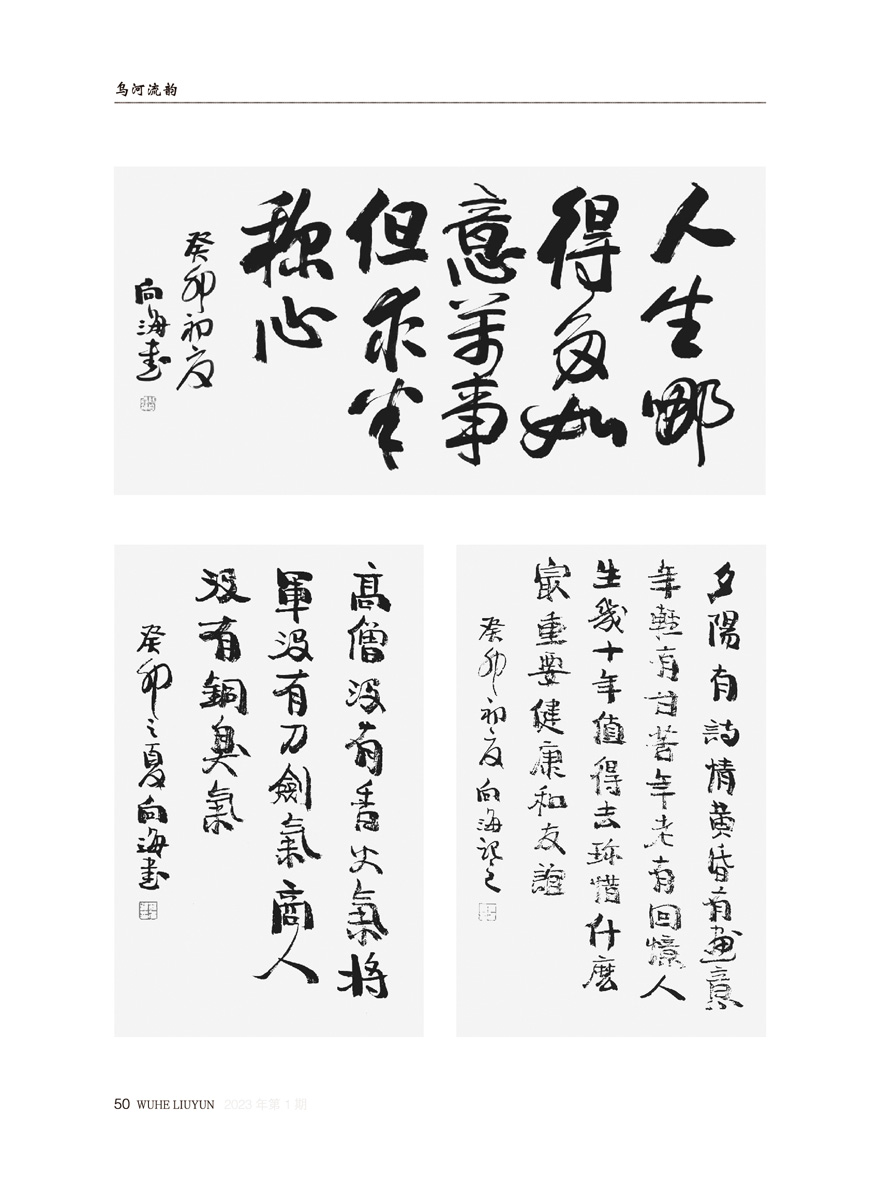 乌河流韵
人生哪
得多如
意萬事
但求半
称心
癸卯初夏
向海書
夕陽有詩情黄昏有画意
年輕有甘苦年老有回憶人
生幾十年值得去珎惜什麽
最重要健康和友誼
癸卯初夏向海記之
高僧没有香火氣将
軍没有刀劍氣商人
没有銅臭氣
癸卯之夏向海書
50 WUHE LIUYUN 2023 年第 1 期